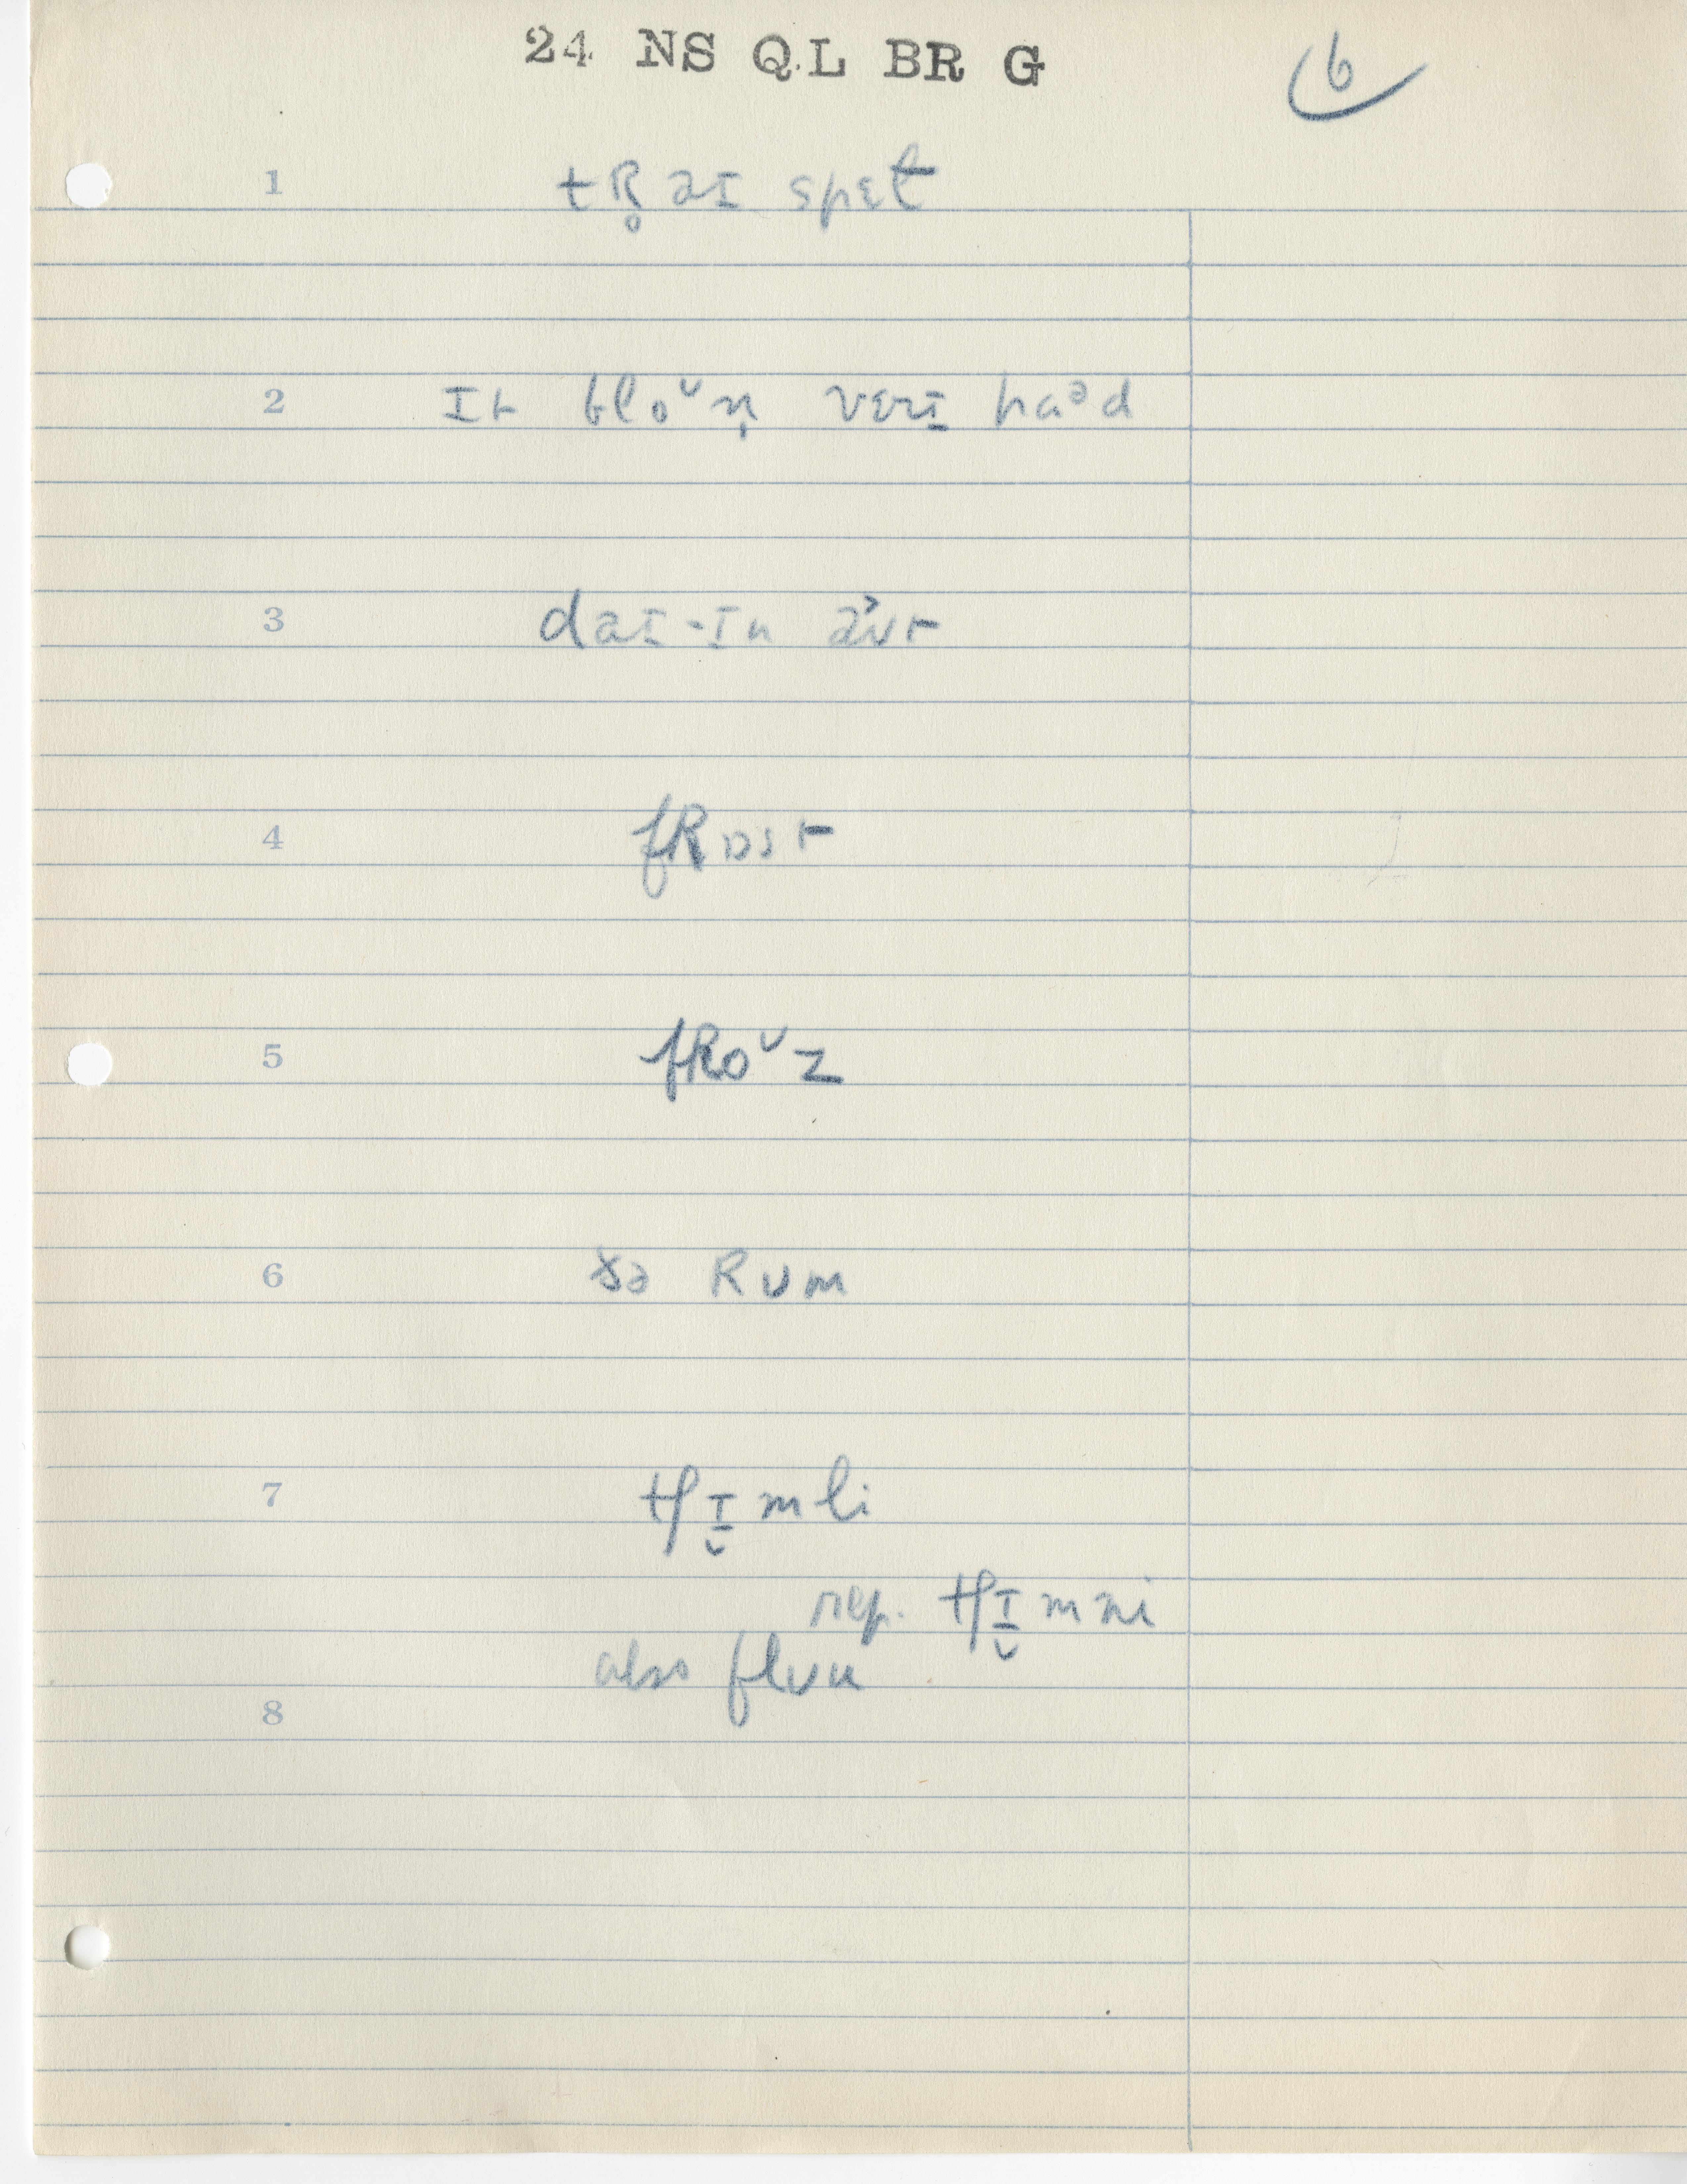 24 NS QL BR G
6
1 tR̥əɪ spɛt
2 ɪt bloᶷn̩ vɛrɪ haᵊd
3 dəɪ-ɪn əʊt
4 fRɒst
5 fRoᶷz
6 ðə Rᴜm
7 tʃɪ̬mli
rep. tʃɪ̬mni
also flᴜu
8